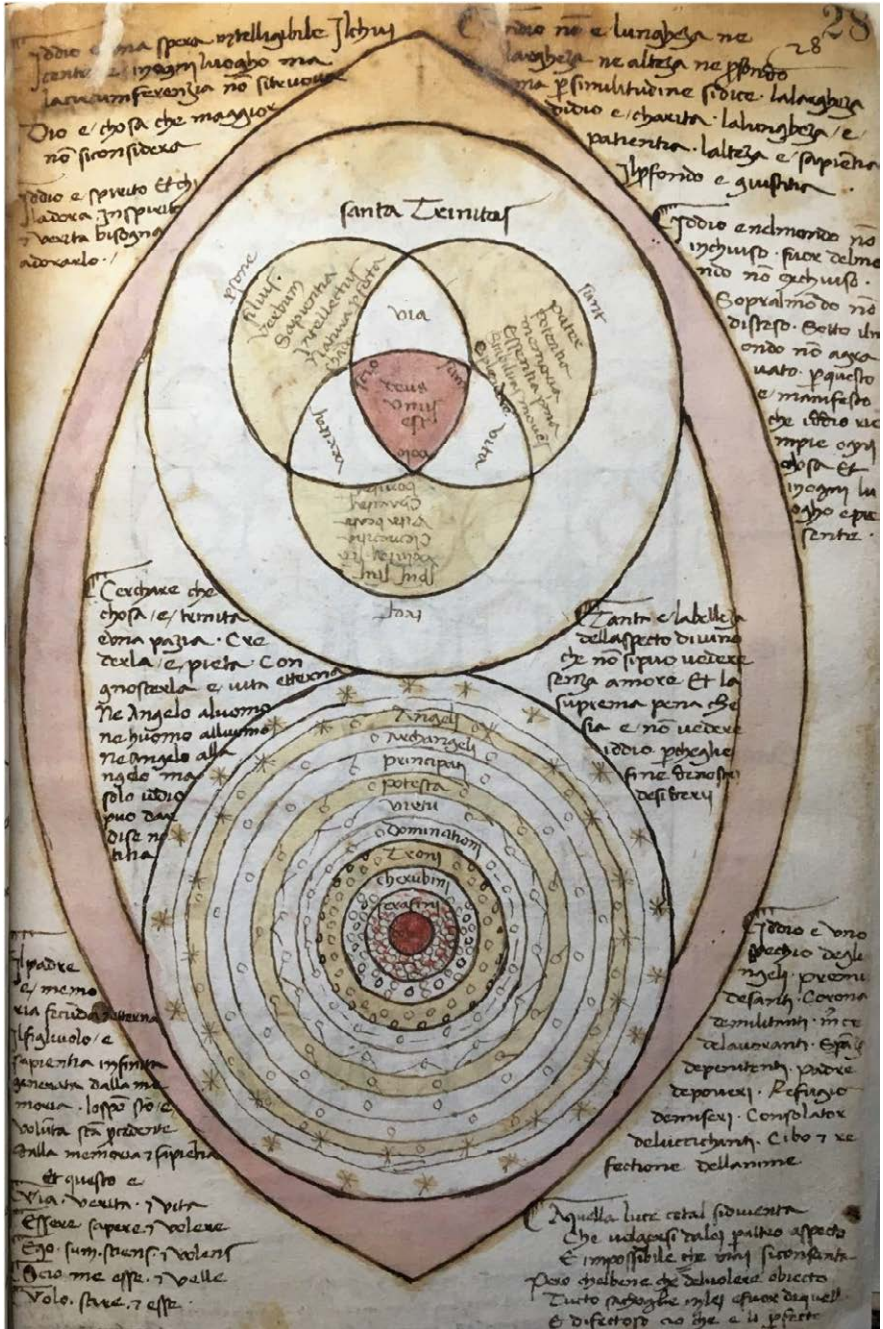 Iddio e una spera intelligibile Ilchui
centro e inogni luogho ma
lacircumferenzia nō sitruova
Dio e chosa che maggior
nō siconsidera
Iddio e spirito Et chi
ladora Inspirito
⁊ verita bisogna
adorarlo ·/
28
28
Iddio nō e lungheza ne
largheza ne alteza ne ꝓfondo
ma ꝑsimilitudine sidice · lalargheza
didio e / charita · lalungheza / e /
patientia · lalteza e / sapientia
Ilꝓfondo e giustitia ·
Iddio enelmondo nō
inchiuso · fuor delmo
ndo nō exchiuso ·
Sopralmōdo nō
disteso · Sotto ilm
ondo nō aggra
vato · ꝑquesto
e manifesto
che iddio rie
mpie ogni
chosa Et
inogni lu
ogho e pre
sente ·
santa Trinitas
psone
filius
verbum
Sapientia
Intellectus
sunt
pater
potentia
memoria
Essentia
via
scio
sum
deus
unus
est
volo
veritas
vita
bonitas
Charitas
Clementia
tres
Cerchare che
chosa / e / trinita
e una pazia · Cre
derla / e / pieta · Con
gnosterla e / vita etterna
Ne Angelo aluomo
ne huomo alluomo
Ne angelo alla
ngelo ma
solo iddio
puo dar
dise no
titia
Tanta e labelleza
dellaspecto divino
che nō sipuo vedere
senza amore Et la
suprema pena che
sia e nō vedere
iddio ꝑcheglie
fine dinostri
desiderii
Angeli
Archangeli
principati
potesta
virtu
dominationi
Troni
cherubini
serafini
Ilpadre
e / memo
ria fecūda etterna
Ilfigluolo / e
sapientia infinita
generata dalla me
moria · lospō sto / e /
volūta stā ꝓcedente
dalla memoria ⁊ sapientia
Et questo e
Via · verita · ⁊ vita
Essere sapere ⁊ volere
Ego · sum · sciens · ⁊ volens
Scio me esse · ⁊ velle
Volo · scire · ⁊ esse ·
Iddio e uno
specchio degli
ngeli · premi
desanti · Corona
demilitanti ·
delavoranti ·
depenitenti · padre
depoveri · Refugio
demiseri · Consolator
· Cibo ⁊ re
fectione dellanime
Aquella luce cotal sidiventa
Che volgersi dalei ꝑaltro aspecto
E impossibile che mai siconsenta
Pero chelbene che delvolere obiecto
Tucto sachoglie inlei efuor diquell
E difectoso cio che e li ꝑfecto